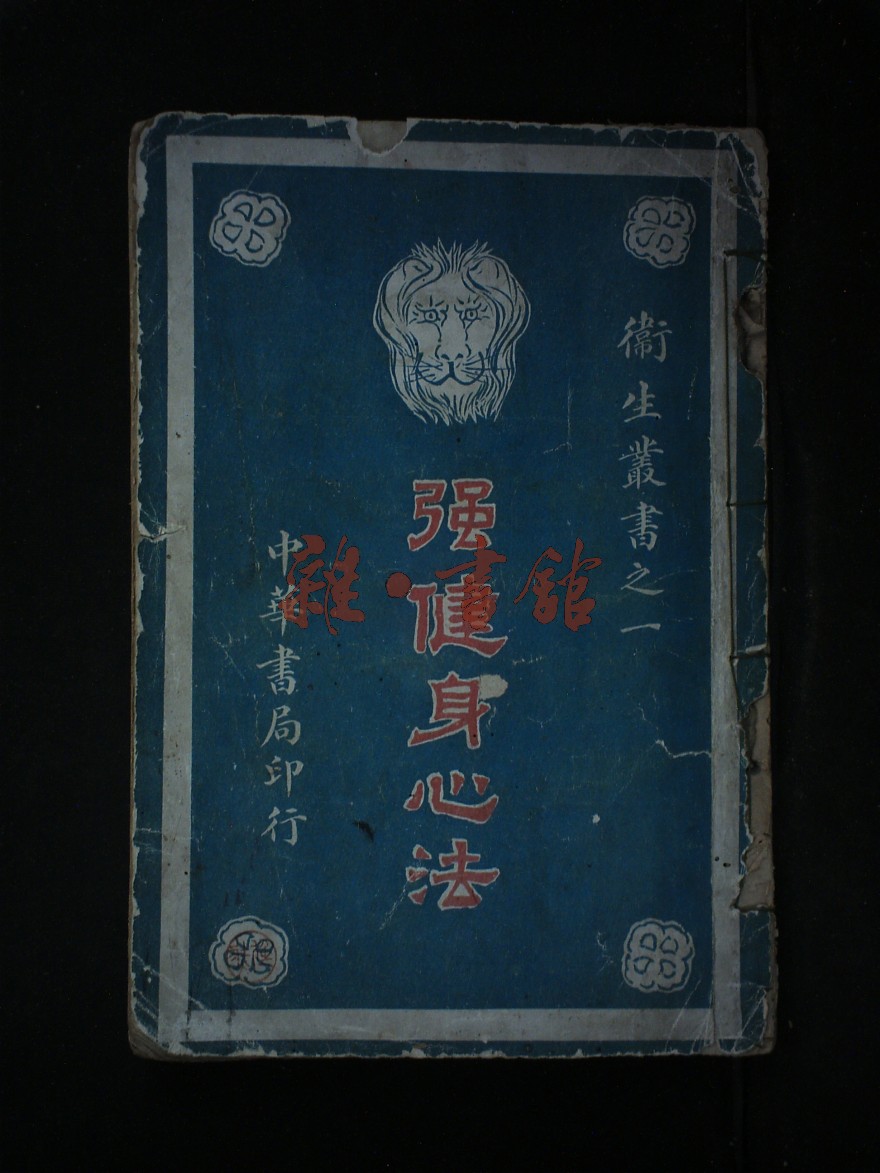 衞生叢書之一
强健身心法
中華書局印行
雜·書館